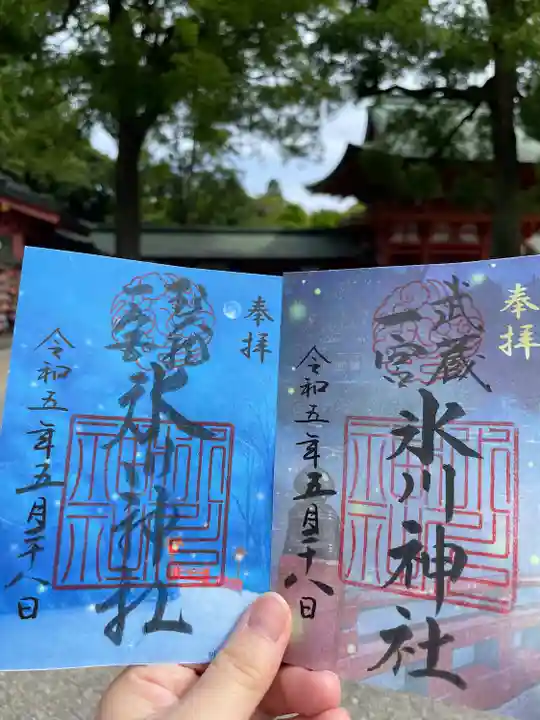 奉拝
武蔵
一宮
氷川神社
令和五年五月二十八日
奉拝
武蔵
一宮
氷川神社
令和五年五月二十八日